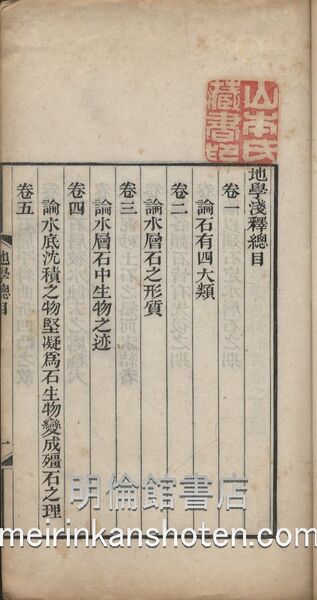 地學淺釋總目
卷一
論石有四大類
卷二
論水層石之形質
卷三
論水層石中生物之迹
卷四
論水底沈積之物堅凝爲石生物變成殭石之理
卷五
地學總目
一
山本氏藏書印
明倫館書店
meirinkanshoten.com